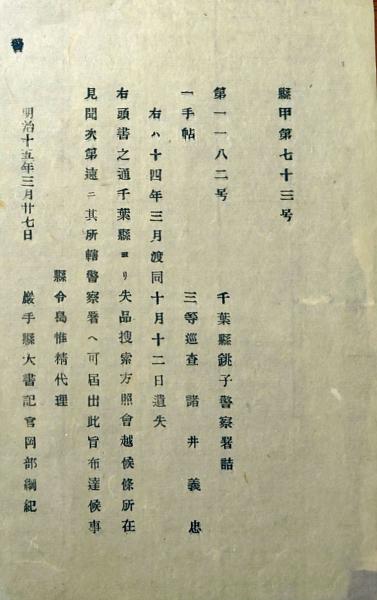 警
縣甲第七十三号
千葉縣銚子警察署詰
第一一八二号
一手帖 三等巡査 諸井義忠
右ハ十四年三月渡同十月十二日遺失
右頭書之通千葉縣ヨリ失品捜索方照會越候條所在
見聞次第速ニ其所轄警察署ヘ可届出此旨布達候事
縣令島惟精代理
明治十五年三月廿七日 巌手縣大書記官岡部綱紀